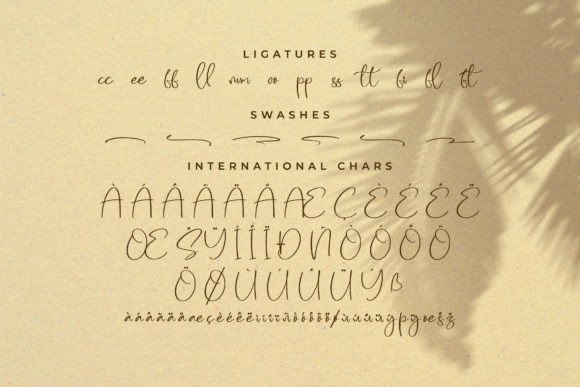 LIGATURES
cc ee ff ll mm oo pp ss tt fi fl ft
SWASHES
INTERNATIONAL CHARS
ÀÁÂÃÄÅÆÇÈÉÊË
ŒŠŸÍÎÏÐÑÒÓÔÕ
ÖØÙÚÛÜÝß